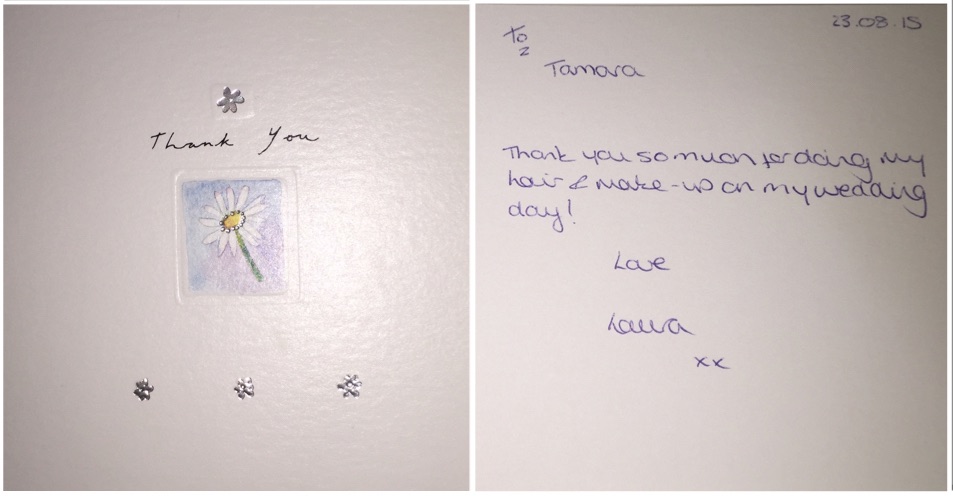 Thank You
23.08.15
To
Tamara
Thank you so much for doing my
hair & make-up on my wedding
day!
Love
Laura
xx